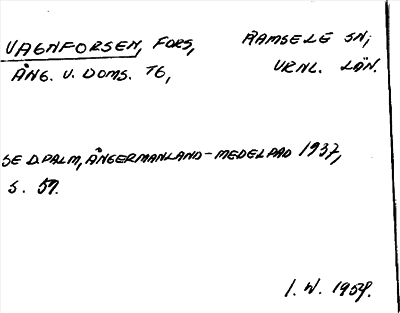 VAGNFORSEN, FORS, RAMSELE SN;
ÅNG. V. DOMS. TG, VRNL. LÄN.
SE D. PALM, ÅNGERMANLAND-MEDELPAD 1937,
S. 57.
I. W. 1959.